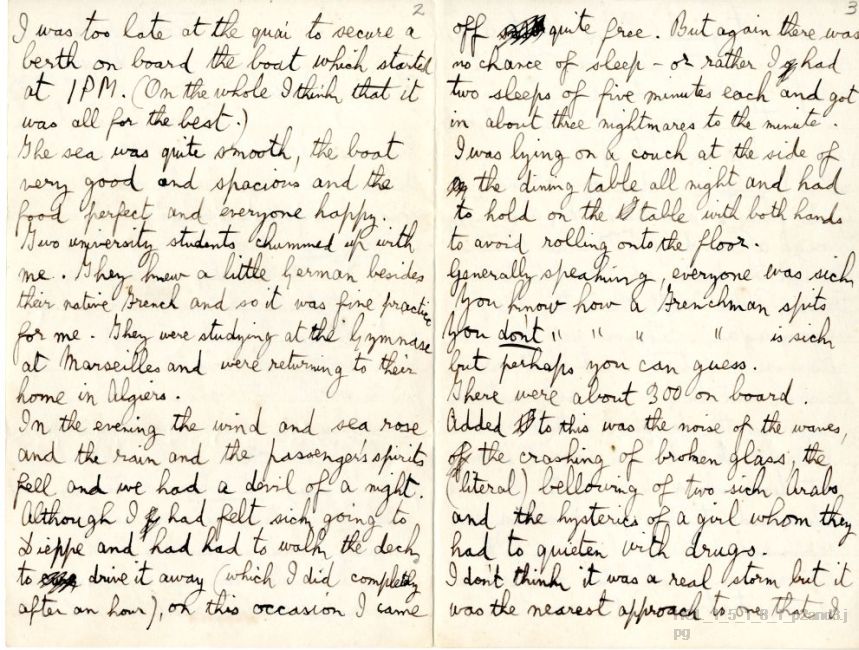 2
I was too late at the quai to secure a
berth on board the boat which started
at 1PM. (On the whole I think that it
was all for the best.)
The sea was quite smooth, the boat
very good and spacious and the
food perfect and everyone happy.
Two university students chummed up with
me. They knew a little German besides
their native French and so it was fine practice
for me. They were studying at the Gymnase
at Marseilles and were returning to their
home in Algiers.
In the evening the wind and sea rose
and the rain and the passenger's spirits
fell and we had a devil of a night.
Although I had felt sick going to
Dieppe and had had to walk the deck
to drive it away (which I did completely
after an hour), on this occasion I came
3
off quite free. But again there was
no chance of sleep - or rather I had
two sleeps of five minutes each and got
in about three nightmares to the minute.
I was lying on a couch at the side of
the dining table all night and had
to hold on the table with both hands
to avoid rolling onto the floor.
Generally speaking, everyone was sick
You know how a Frenchman spits
You don't " " " " is sick
but perhaps you can guess.
There were about 300 on board.
Added to this was the noise of the waves,
the crashing of broken glass, the
(literal) bellowing of two sick Arabs
and the hysterics of a girl whom they
had to quieten with drugs.
I don't think it was a real storm but it
was the nearest approach to one that I